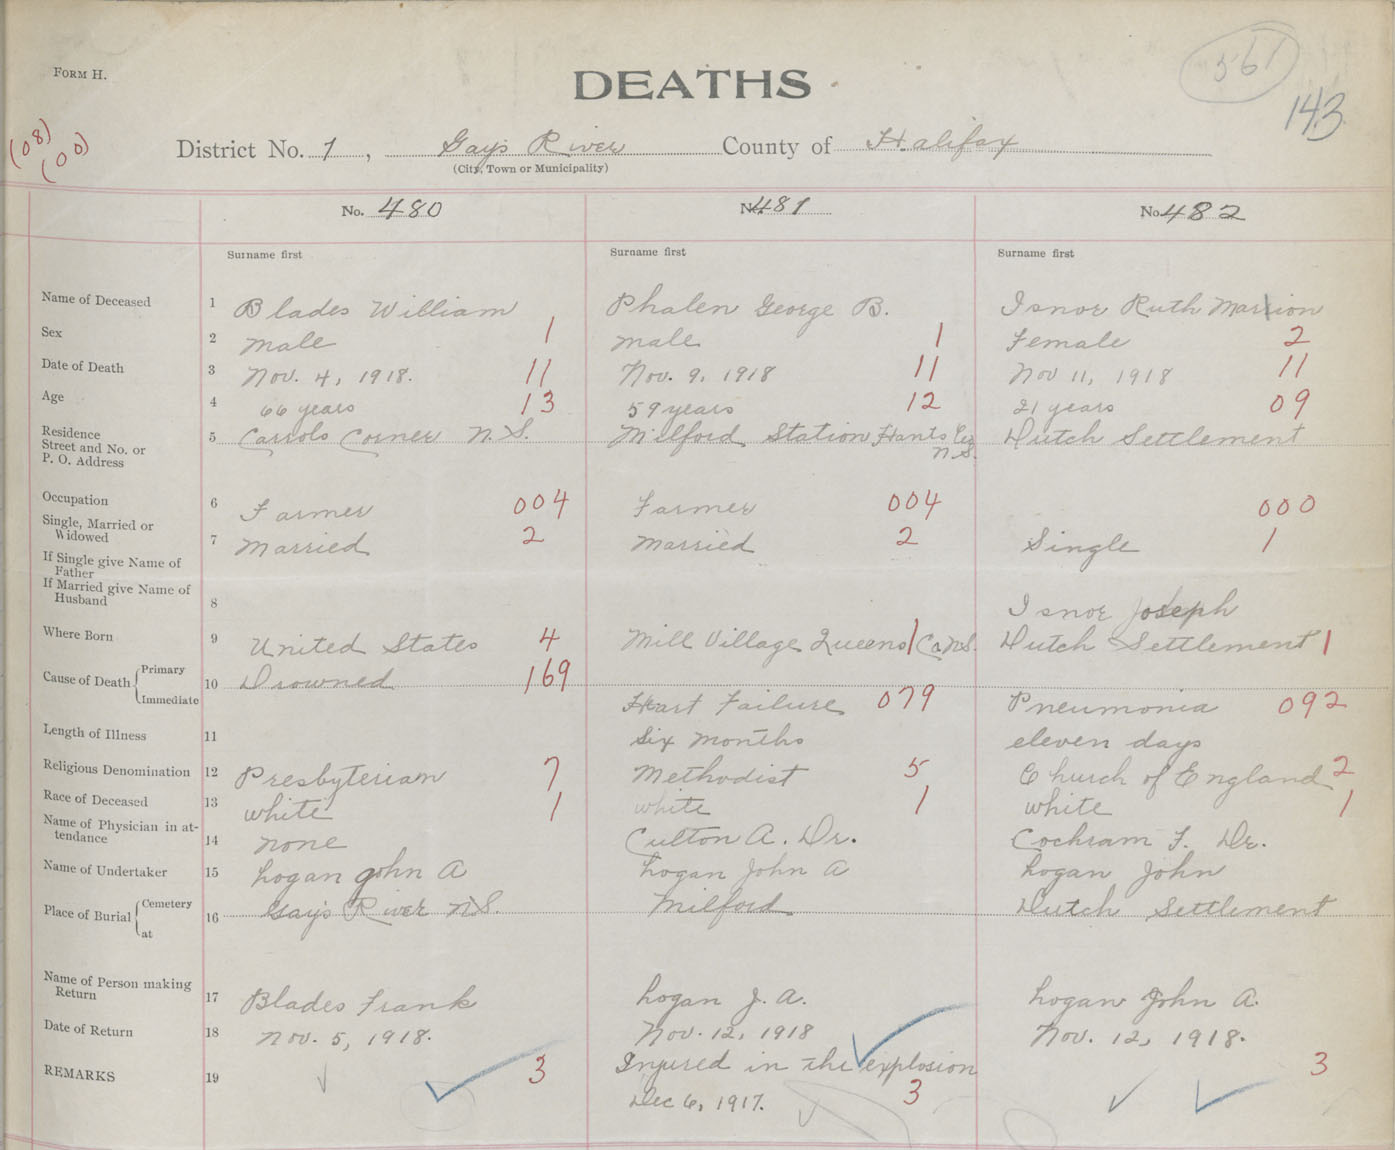 FORM H.
DEATHS
561
143
(08)
(00)
District No. 1, Gays River County of Halifax
(City, Town or Municipality)
No. 480 No. 481 No. 482
Surname first Surname first Surname first
Name of Deceased 1 Blades William Phalen George B. Isnor Ruth Marrion
Sex 2 male 1 male 1 Female 2
Date of Death 3 Nov. 4, 1918. 11 Nov. 9, 1918 11 Nov 11, 1918 11
Age 4 66 years 13 59 years 12 21 years 09
Residence
Street and No. or
P. O. Address 5 Carrols Corner N.S. Milford Station Hants Co N.S. Dutch Settlement
Occupation 6 Farmer 004 Farmer 004 000
Single, Married or
Widowed 7 Married 2 Married 2 Single 1
If Single give Name of
Father
If Married give Name of
Husband 8 Isnor Joseph
Where Born 9 United States 4 Mill Village Queens 1 Co N.S. Dutch Settlement 1
Cause of Death Primary
Immediate 10 Drowned 169 Heart Failure 079 Pneumonia 092
Length of Illness 11 Six months eleven days
Religious Denomination 12 Presbyterian 7 Methodist 5 Church of England 2
Race of Deceased 13 white 1 white 1 white 1
Name of Physician in at-
tendance 14 none Culton A. Dr. Cochram F. Dr.
Name of Undertaker 15 Logan John A Logan John A Logan John
Place of Burial Cemetery
at 16 Gay's River N.S. Milford Dutch Settlement
Name of Person making
Return 17 Blades Frank Logan J. A. Logan John A.
Date of Return 18 Nov. 5, 1918. Nov. 12, 1918 Nov. 12, 1918.
REMARKS 19 3 Injured in the explosion 3
Dec 6, 1917. 3